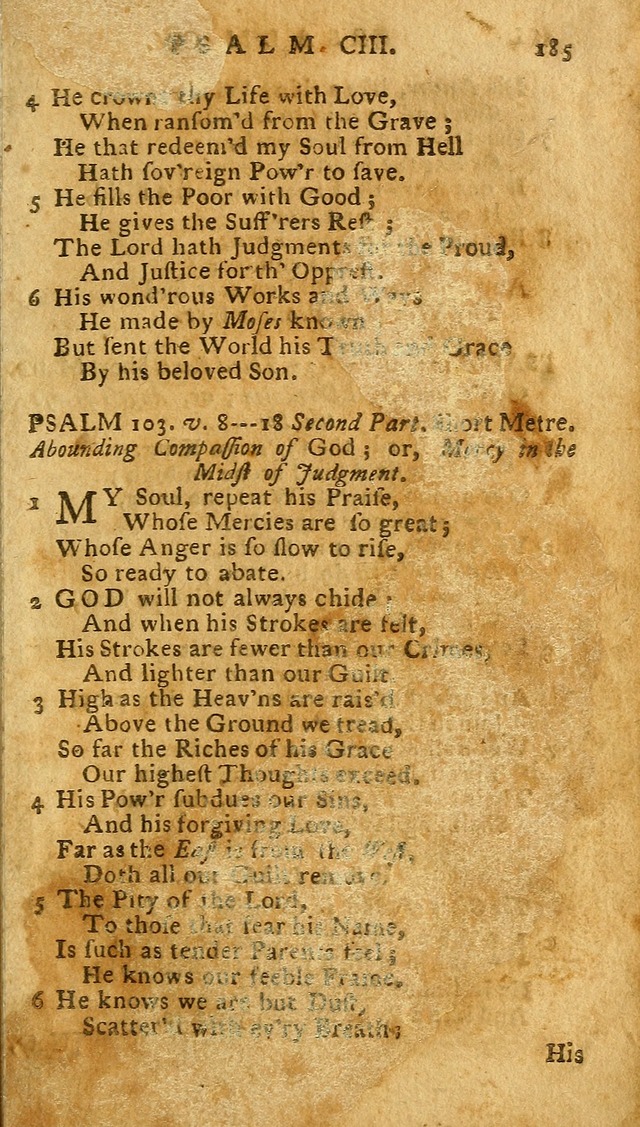 PSALM. CIII. 185
4 He crowns thy Life with Love,
When ranſom'd from the Grave ;
He that redeem'd my Soul from Hell
Hath ſov'reign Pow'r to ſave.
5 He fills the Poor with Good ;
He gives the Suff'rers Reſt ;
The Lord hath Judgments for the Proud,
And Juſtice for th' Oppreſt.
6 His wond'rous Works and Ways
He made by Moſes known
But ſent the World his Truth and Grace
By his beloved Son.
PSALM 103. v. 8---18 Second Part. Short Metre.
Abounding Compaſſion of God ; or, Mercy in the
Midſt of Judgment.
1 MY Soul, repeat his Praiſe,
Whoſe Mercies are ſo great ;
Whoſe Anger is ſo ſlow to riſe,
So ready to abate.
2 GOD will not always chide ;
And when his Strokes are felt,
His Strokes are fewer than our Crimes,
And lighter than our Guilt.
3 High as the Heav'ns are rais'd
Above the Ground we tread,
So far the Riches of his Grace
Our higheſt Thoughts exceed.
4 His Pow'r ſubdues our Sins,
And his forgiving Love,
Far as the Eaſt is from the Weſt,
Doth all our Guilt remove.
5 The Pity of the Lord,
To thoſe that fear his Name,
Is ſuch as tender Parents feel ;
He knows our feeble Frame.
6 He knows we are but Duſt,
Scatter'd with ev'ry Breath ;
His